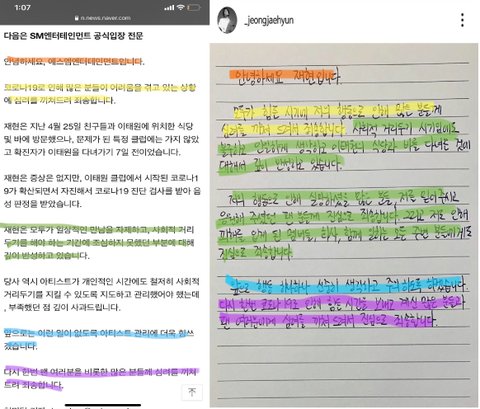 1:07
n.news.naver.com
다음은 SM엔터테인먼트 공식입장 전문
안녕하세요, 에스엠엔터테인먼트입니다.
코로나19로 인해 많은 분들이 어려움을 겪고 있는 상황
에 심려를 끼쳐드려 죄송합니다.
재현은 지난 4월 25일 친구들과 이태원에 위치한 식당
및 바에 방문했으나, 문제가 된 특정 클럽에는 가지 않았
고 확진자가 이태원을 다녀가기 7일 전이었습니다.
재현은 증상은 없지만, 이태원 클럽에서 시작된 코로나1
9가 확산되면서 자진해서 코로나19 진단 검사를 받아 음
성 판정을 받았습니다.
재현은 모두가 일상적인 만남을 자제하고, 사회적 거리
두기를 해야 하는 기간에 조심하지 못했던 부분에 대해
깊이 반성하고 있습니다.
당사 역시 아티스트가 개인적인 시간에도 철저히 사회적
거리두기를 지킬 수 있도록 지도하고 관리했어야 했는데
, 부족했던 점 깊이 사과드립니다.
앞으로는 이런 일이 없도록 아티스트 관리에 더욱 힘쓰
겠습니다.
다시 한번 팬 여러분을 비롯한 많은 분들께 심려를 끼쳐
드려 죄송합니다.
_jeongjaehyun
안녕하세요 재현입니다.
모두가 힘든 시기에 저의 행동으로 인해 많은 분들께
심려를 끼쳐 드려서 죄송합니다. 사회적 거리두기 시기임에도
불구하고 안일하게 생각하고 이태원의 식당과 바를 다녀온 것에
대해서 깊이 반성하고 있습니다.
저의 행동으로 인해 실망하셨을 많은 분들, 저를 믿어주시고
응원해 주셨던 팬 분들께 진심으로 죄송합니다. 그리고 저로 인해
피해를 입게 된 멤버들, 회사, 함께 일하는 모든 주변 분들에게도
진심으로 죄송합니다.
앞으로 행동 하나하나 신중히 생각하고 주의하도록 하겠습니다.
다시 한번 코로나19로 인해 힘든 시간을 보내고 계신 많은 분들과
팬 여러분에게 심려를 끼쳐 드려서 진심으로 죄송합니다.